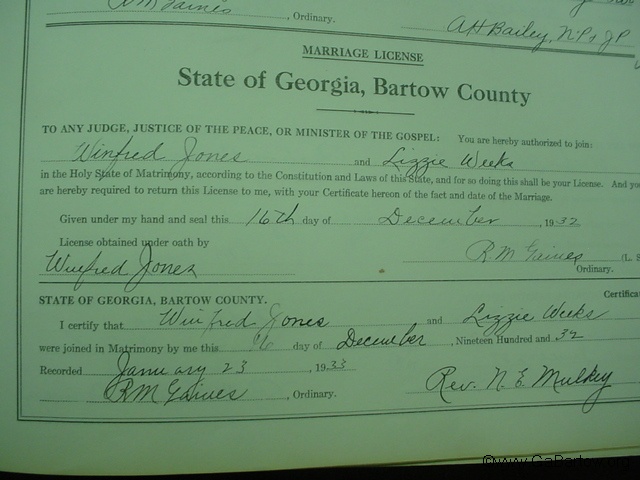 RM Gaines, Ordinary.
AH Bailey, N.P. & J.P.
MARRIAGE LICENSE
State of Georgia, Bartow County
TO ANY JUDGE, JUSTICE OF THE PEACE, OR MINISTER OF THE GOSPEL: You are hereby authorized to join:
Winfred Jones and Lizzie Weeks
in the Holy State of Matrimony, according to the Constitution and Laws of this State, and for so doing this shall be your License. And you
are hereby required to return this License to me, with your Certificate hereon of the fact and date of the Marriage.
Given under my hand and seal this 16th day of December, 1932
License obtained under oath by
RM Gaines (L. S
Winfred Jones Ordinary.
STATE OF GEORGIA, BARTOW COUNTY. Certifica
I certify that Winifred Jones and Lizzie Weeks
were joined in Matrimony by me this day of December, Nineteen Hundred and 32
Recorded January 23, 1933
RM Gaines, Ordinary.
Rev. N. E. Mulkey